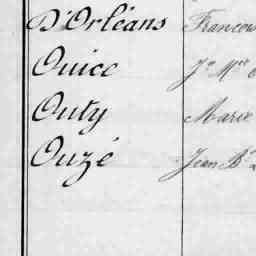 D'Orléans Francois
Ouice Jn Mce
Outy Marie
Ouzé Jean Bte